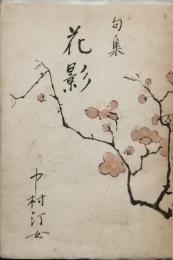 句集
花影
中村汀女